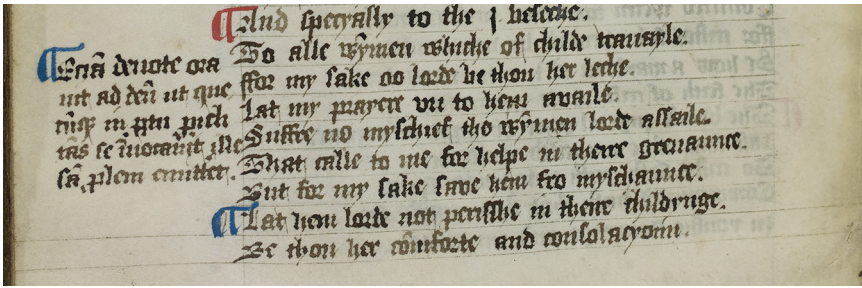 ¶And specyally to the I beseche.
To alle wymen whiche of childe trauayle.
ffor my sake oo lorde be thou her leche.
Lat my prayere vn to hem availe.
Suffre no myschief tho wymen lorde assaile.
That calle to me for helpe in theire greuaunce.
But for my sake save hem fro myschaunce.
¶Lat hem lorde not perisshe in theire childynge.
Be thou her cōmforte and consolacyoun.
¶Ecīa deuote ora
uit ad deū ut que
cūq in ptu picli
tās se īuocauīt ille
sā plem emittet.